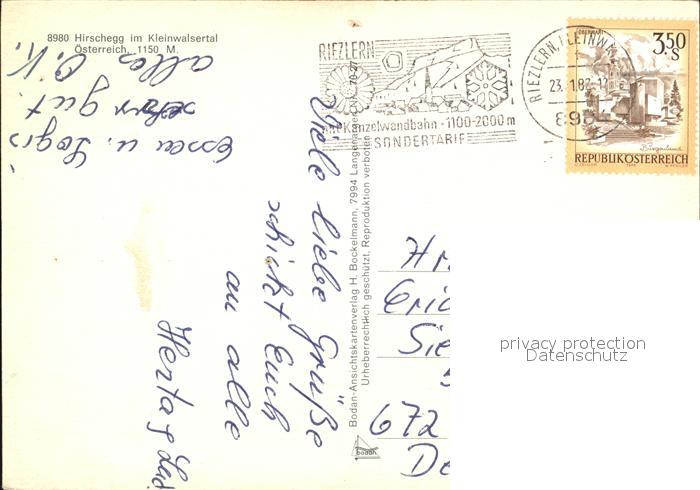 8980 Hirschegg im Kleinwalsertal
Österreich, 1150 M.
Viele liebe Grüße
schickt Euch
an alle
Herta &
Essen u. Logis
sehr gut.
alles O.K.
Bodan-Ansichtskartenverlag H. Bockelmann, 7994 Langenargen
Urheberrechtlich geschützt, Reproduktion verboten
bodan
RIEZLERN
Kanzelwandbahn · 1100-2000m
SONDERTARIF
RIEZLERN, KLEINW
23. 1.82-17
OBERWART
3.50
S
Burgenland
REPUBLIK ÖSTERREICH
Hr
Eric
Sie
672
De
privacy protection
Datenschutz